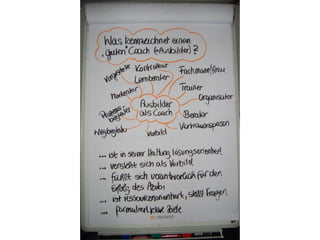 Was kennzeichnet einen
"guten" Coach (=Ausbilder)?
Vorgesetzter
Kontrolleur
Lernberater
Fachmann/frau
Moderator
Trainer
Organisator
Prozess
begleiter
Ausbilder
als Coach
Berater
Wegbegleiter
Vorbild
Vertrauensperson
... ist in seiner Haltung lösungsorientiert
... versteht sich als Vorbild
... fühlt sich verantwortlich für den
Erfolg des Azubi
... ist Ressourcenorientiert, stellt Fragen
... formuliert klare Ziele
neuland